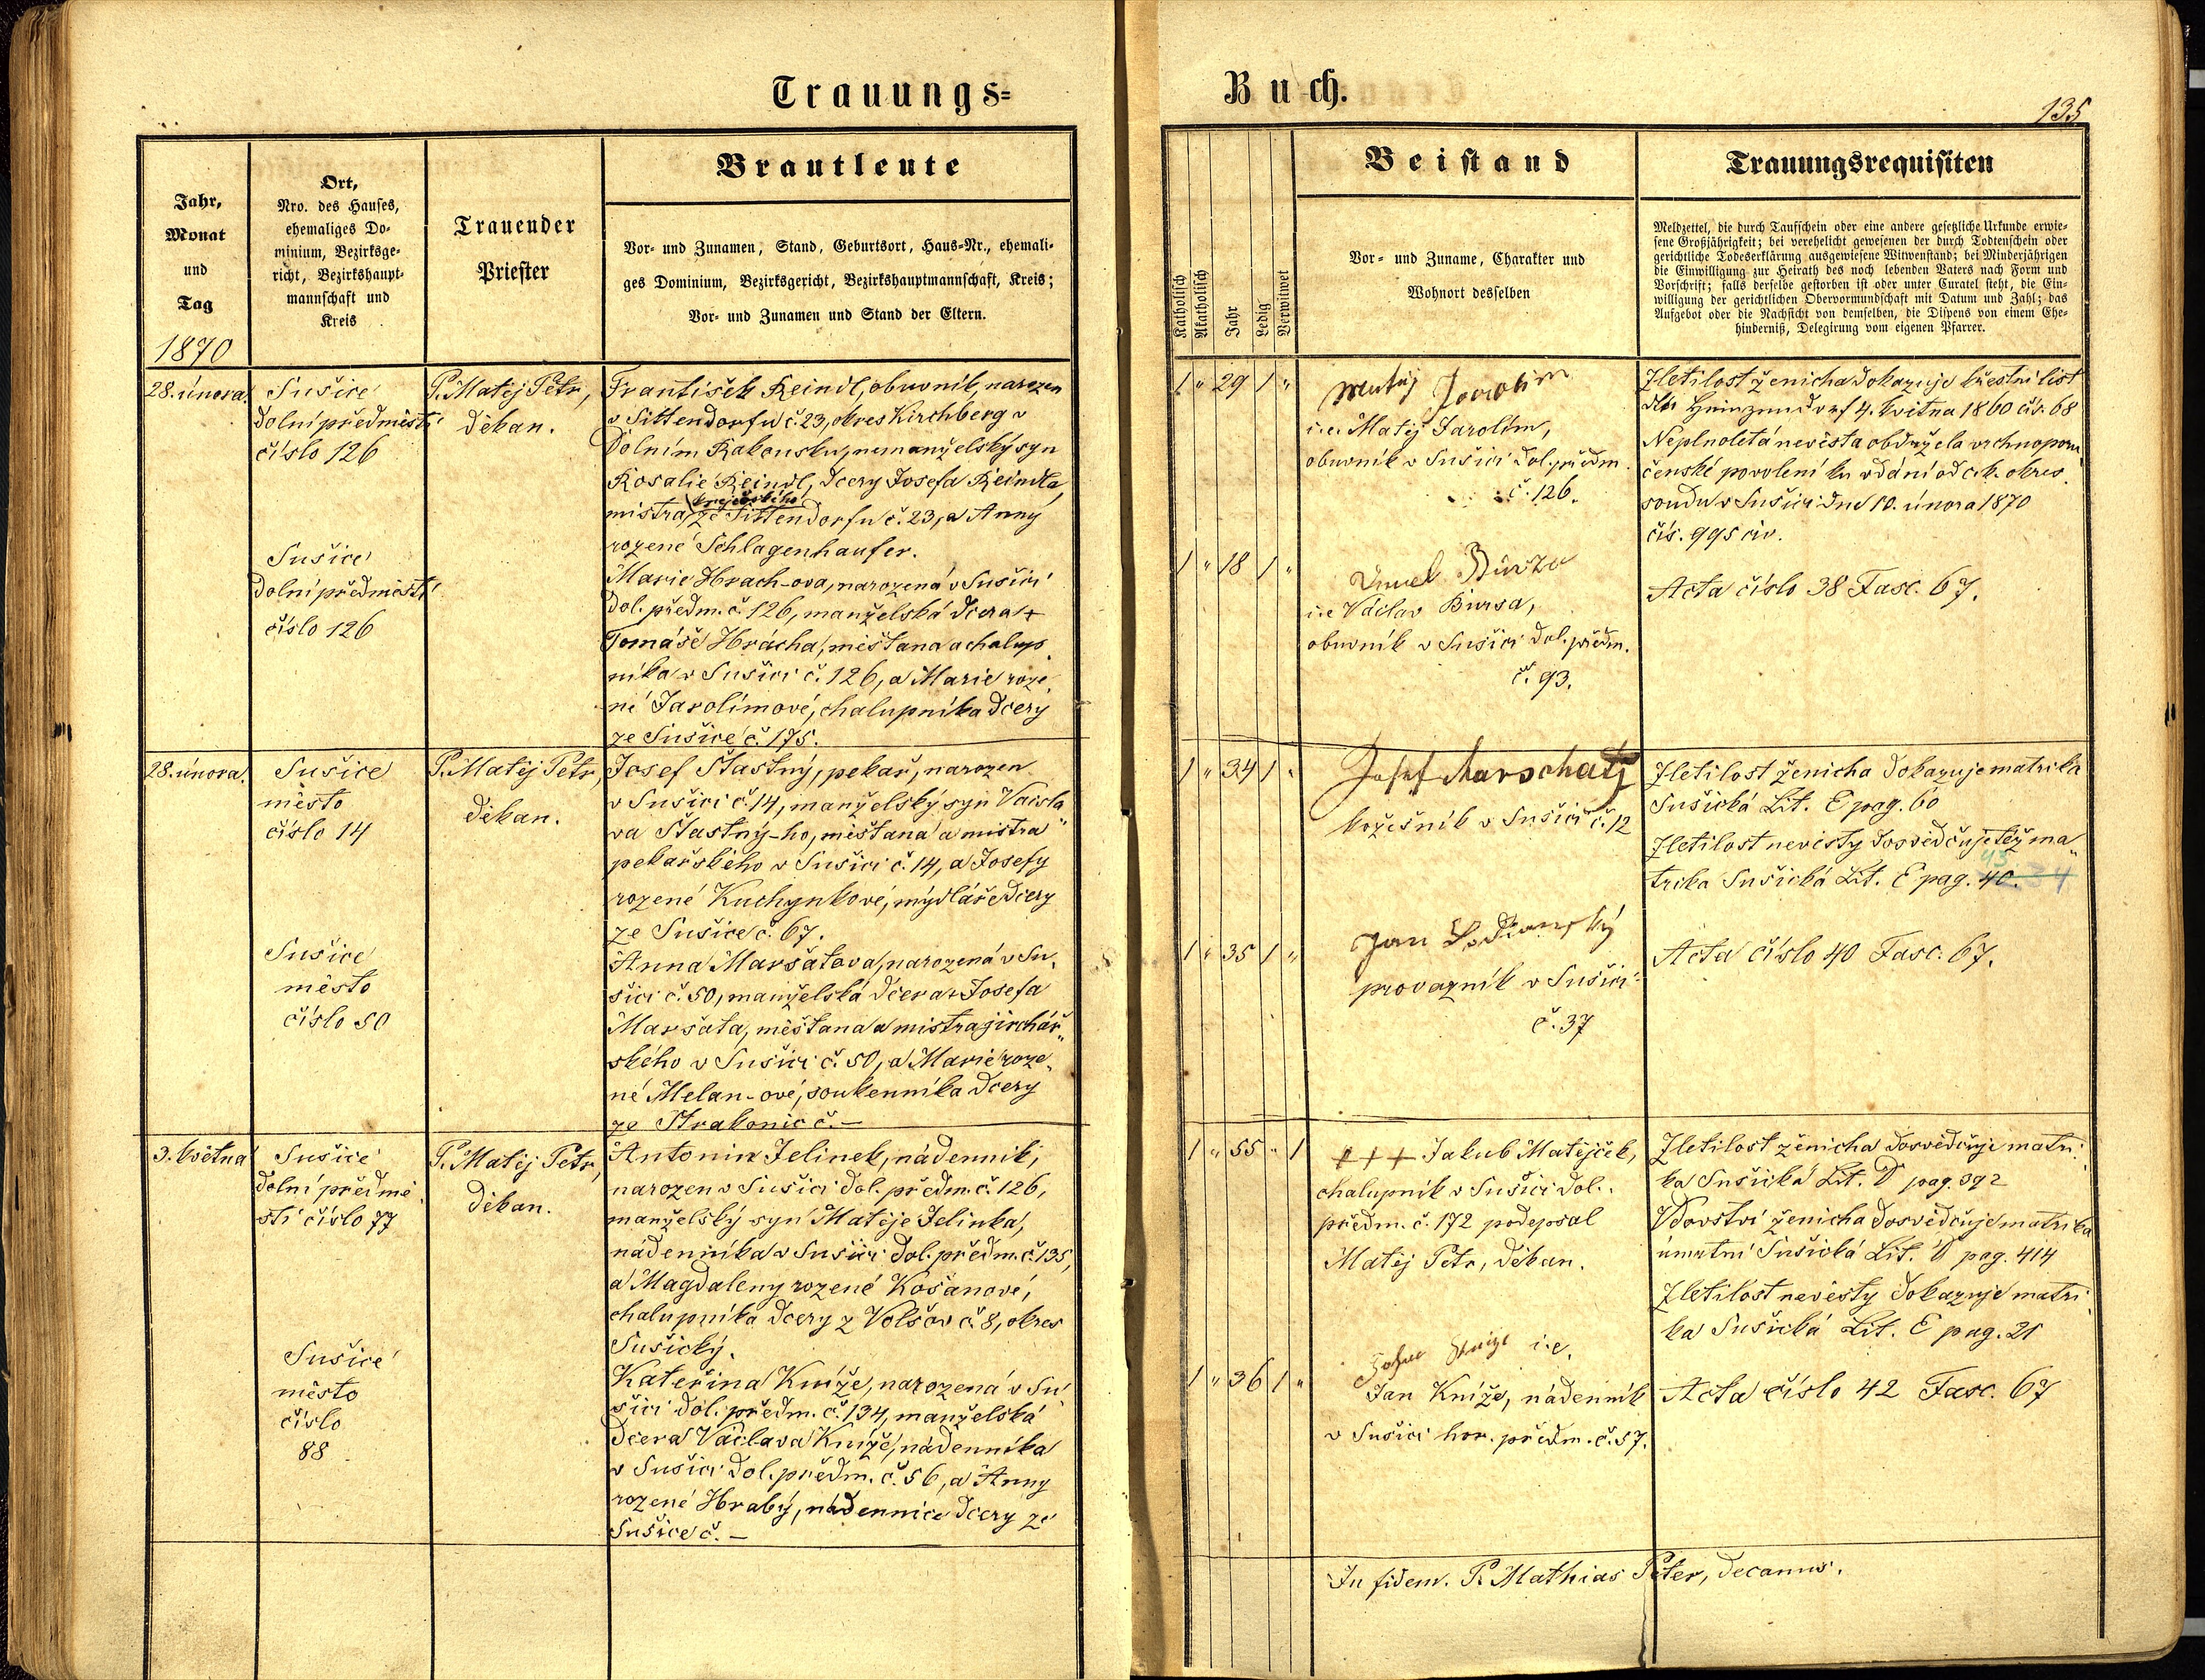 Trauungs=
Buch.
135
Jahr,
Monat
und
Tag
1870
Ort,
Nro. des Hauses,
ehemaliges Do-
minium, Bezirksge-
richt, Bezirkshaupt-
mannschaft und
Kreis
Trauender
Priester
Brautleute
Vor- und Zunamen, Stand, Geburtsort, Haus-Nr., ehemali-
ges Dominium, Bezirksgericht, Bezirkshauptmannschaft, Kreis;
Vor- und Zunamen und Stand der Eltern.
Katholisch
Akatholisch
Jahr
Ledig
Verwitwet
Beistand
Vor- und Zuname, Charakter und
Wohnort desselben
Trauungsrequisiten
Meldzettel, die durch Taufschein oder eine andere gesetzliche Urkunde erwie-
sene Großjährigkeit; bei verehelicht gewesenen der durch Todtenschein oder
gerichtliche Todeserklärung ausgewiesene Witwenstand; bei Minderjährigen
die Einwilligung zur Heirath des noch lebenden Vaters nach Form und
Vorschrift; falls derselbe gestorben ist oder unter Curatel steht, die Ein-
willigung der gerichtlichen Obervormundschaft mit Datum und Zahl; das
Aufgebot oder die Nachsicht von demselben, die Dispens von einem Ehe-
hinderniß, Delegirung vom eigenen Pfarrer.
28. února.
Sušice
dolní předměstí
číslo 126
P. Matěj Petr,
děkan.
František Reindl, obuvník, narozen
v Sittendorfu č. 23, okres Kirchberg v
Dolním Rakousku, nemanželský syn
Rosalie Reindl, dcery Josefa Reindla
krejčovského
mistra ze Sittendorfu č. 23, a Anny
rozené Schlagenhaufer.
Sušice
dolní předměstí
číslo 126
Marie Hrach-ova, narozená v Sušici
dol. předm. č. 126, manželská dcera +
Tomáše Hrácha, měšťana a chalup
níka v Sušici č. 126, a Marie roze
né Jarolímové, chalupníka dcery
ze Sušice č. 175.
1 " 29 1 "
Matěj Jarolim
i.e. Matěj Jarolím,
obuvník v Sušici dol. předm.
č. 126.
1 " 18 1 "
i.e Václav Bursa,
obuvník v Sušici dol. předm.
č. 93.
Zletilost ženicha dokazuje křestní list
4. května 1860 čís. 68
Neplnoletá nevěsta obdržela vrchnoporu
čenské povolení ku vdání od c. k. okres.
soudu v Sušici dne 10. února 1870
čís. 995 civ.
Acta číslo 38 Fasc. 67.
28. února.
Sušice
město
číslo 14
P. Matěj Petr,
děkan.
Josef Šťastný, pekař, narozen
v Sušici č. 14, manželský syn Václa
va Šťastný-ho, měšťana a mistra
pekařského v Sušici č. 14, a Josefy
rozené Kuchynkové, mydláře dcery
ze Sušice č. 67.
Sušice
město
číslo 50
Anna Maršatova, narozená v Su
šici č. 50, manželská dcera + Josefa
Maršata, měšťana a mistra jirchář
ského v Sušici č. 50, a Marie roze
né Melan-ové, soukenníka dcery
ze Strakonic č. —
1 " 34 1 "
Josef Marschatj
kožešník v Sušici č. 12
1 " 35 1 "
Jan
provazník v Sušici
č. 37
Zletilost ženicha dokazuje matrika
Sušická Lit. E pag. 60
Zletilost nevěsty dosvědčuje též ma
trika Sušická Lit. E pag. 40.
Acta číslo 40 Fasc. 67.
3. května
Sušice
dolní předmě
stí číslo 77
P. Matěj Petr,
děkan.
Antonin Jelinek, nádenník,
narozen v Sušici dol. předm. č. 126,
manželský syn Matěje Jelinka,
nádenníka v Sušici dol. předm. č. 135,
a Magdaleny rozené Košanové,
chalupníka dcery z Volšov č. 8, okres
Sušický.
Sušice
město
číslo
88
Kateřina Kníže, narozená v Su
šici dol. předm. č. 134, manželská
dcera Václava Kníže, nádenníka
v Sušici dol. předm. č. 56, a Anny
rozené Hrabý, nádennice dcery ze
Sušice č. —
1 " 55 " 1
+++ Jakub Matějček,
chalupník v Sušici dol.
předm. č. 172 podepsal
Matěj Petr, děkan.
1 " 36 1 "
i.e.
Jan Kníže, nádenník
v Sušici hor. předm. č. 57.
Zletilost ženicha dosvědčuje matri
ka Sušická Lit. D pag. 392
Vdovství ženicha dosvědčuje matrika
úmrtní Sušická Lit. D pag. 414
Zletilost nevěsty dokazuje matri
ka Sušická Lit. E pag. 21
Acta číslo 42 Fasc. 67
In fidem. P. Mathias Peter, decanus.